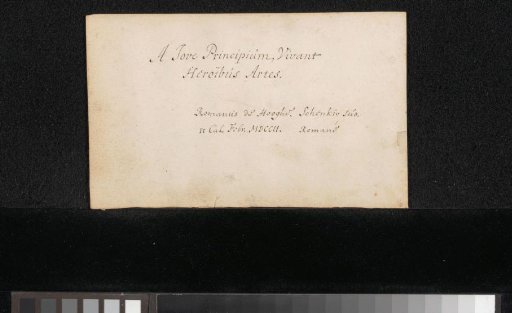 A Jove Principiùm, Vivant
Heroibùs Artes.
Romanùs de Hooghe. Schenkio sùo.
II Cal. Febr. MDCCII. Romanùs